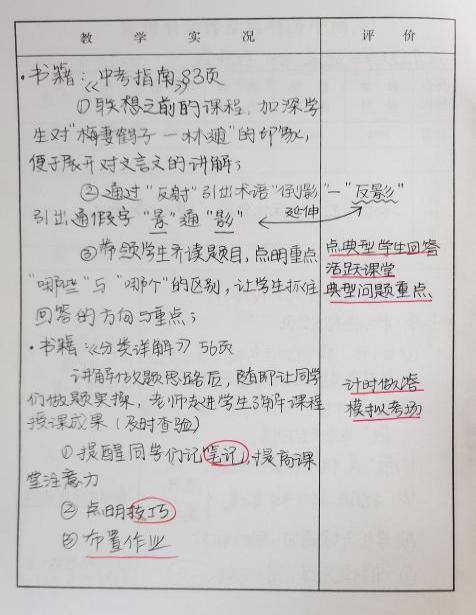 教 学 实 况 评 价
·书籍:《中考指南》83页
①联想之前的课程,加深学
生对"梅妻鹤子—林逋"的印象,
便于展开对文言文的讲解;
②通过"反射"引出术语"倒影"—"反影"
引出通假字"景"通"影" 延伸
③带领学生齐读题目,点明重点 点典型学生回答
活跃课堂
"哪些"与"哪个"的区别,让学生抓住 典型问题重点
回答的方向与重点;
·书籍《分类详解》56页
讲解做题思路后,随即让同学 计时做答
们做题实操,老师走进学生了解课程 模拟考场
授课成果(及时查验)
①提醒同学们记笔记,提高课
堂注意力
②点明技巧
③布置作业